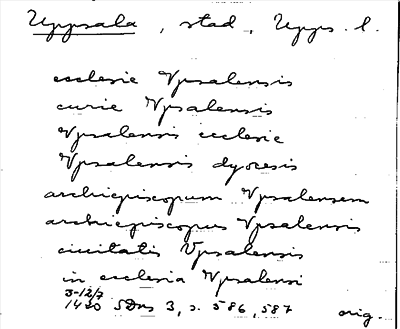 Uppsala, stad, Upps. l.
ecclesie Vpsalensis
curie Vpsalensis
Vpsalensis ecclesie
Vpsalensis dyocesis
archiepiscopum Vpsalensem
archiepiscopus Vpsalensis
ciuitatis Vpsalensis
in ecclesia Vpsalensi
3-12/7
1420 SDns 3, s. 586, 587 orig.